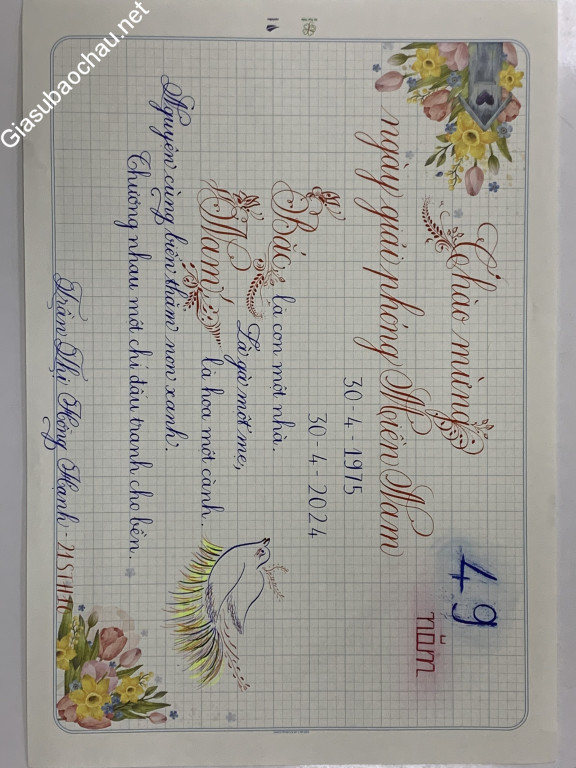 Chào mừng
49
năm
ngày giải phóng Miền Nam
30-4-1975
30-4-2024
Bắc là con một nhà.
Là gà một mẹ,
Nam là hoa một cành.
Nguyện cùng biển thẳm non xanh.
Thương nhau một chí đấu tranh cho bền.
Trần Thị Hồng Hạnh - 21STH
Giasubaochau.net